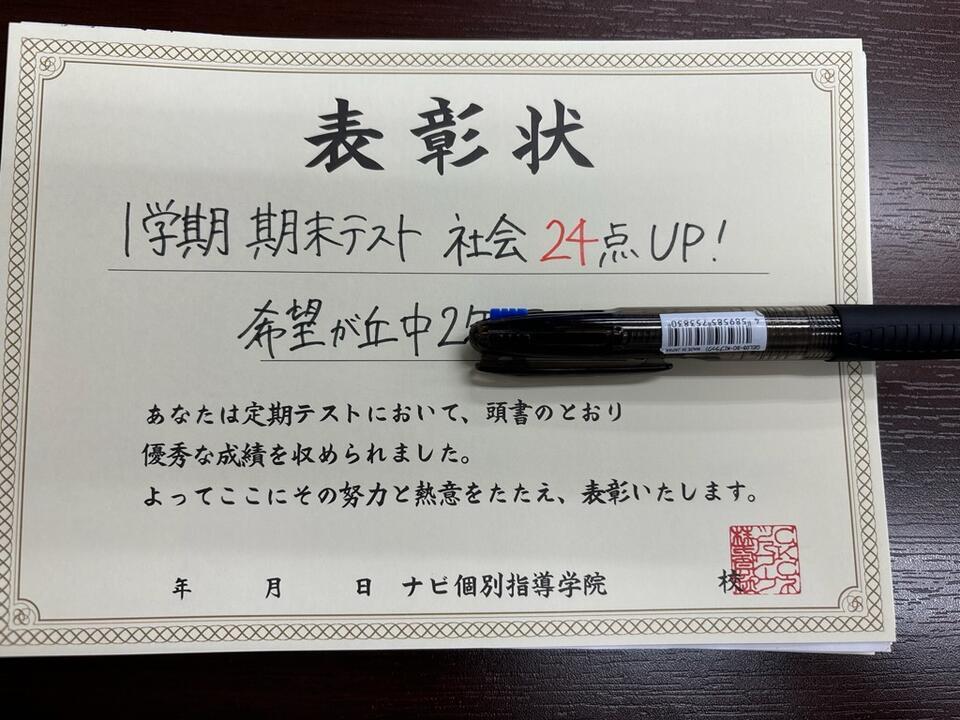 表彰状
1学期 期末テスト 社会 24点UP!
希望が丘中2
あなたは定期テストにおいて、頭書のとおり
優秀な成績を収められました。
よってここにその努力と熱意をたたえ、表彰いたします。
年 月 日 ナビ個別指導学院 校
4 589585 753830
MADE IN JAPAN